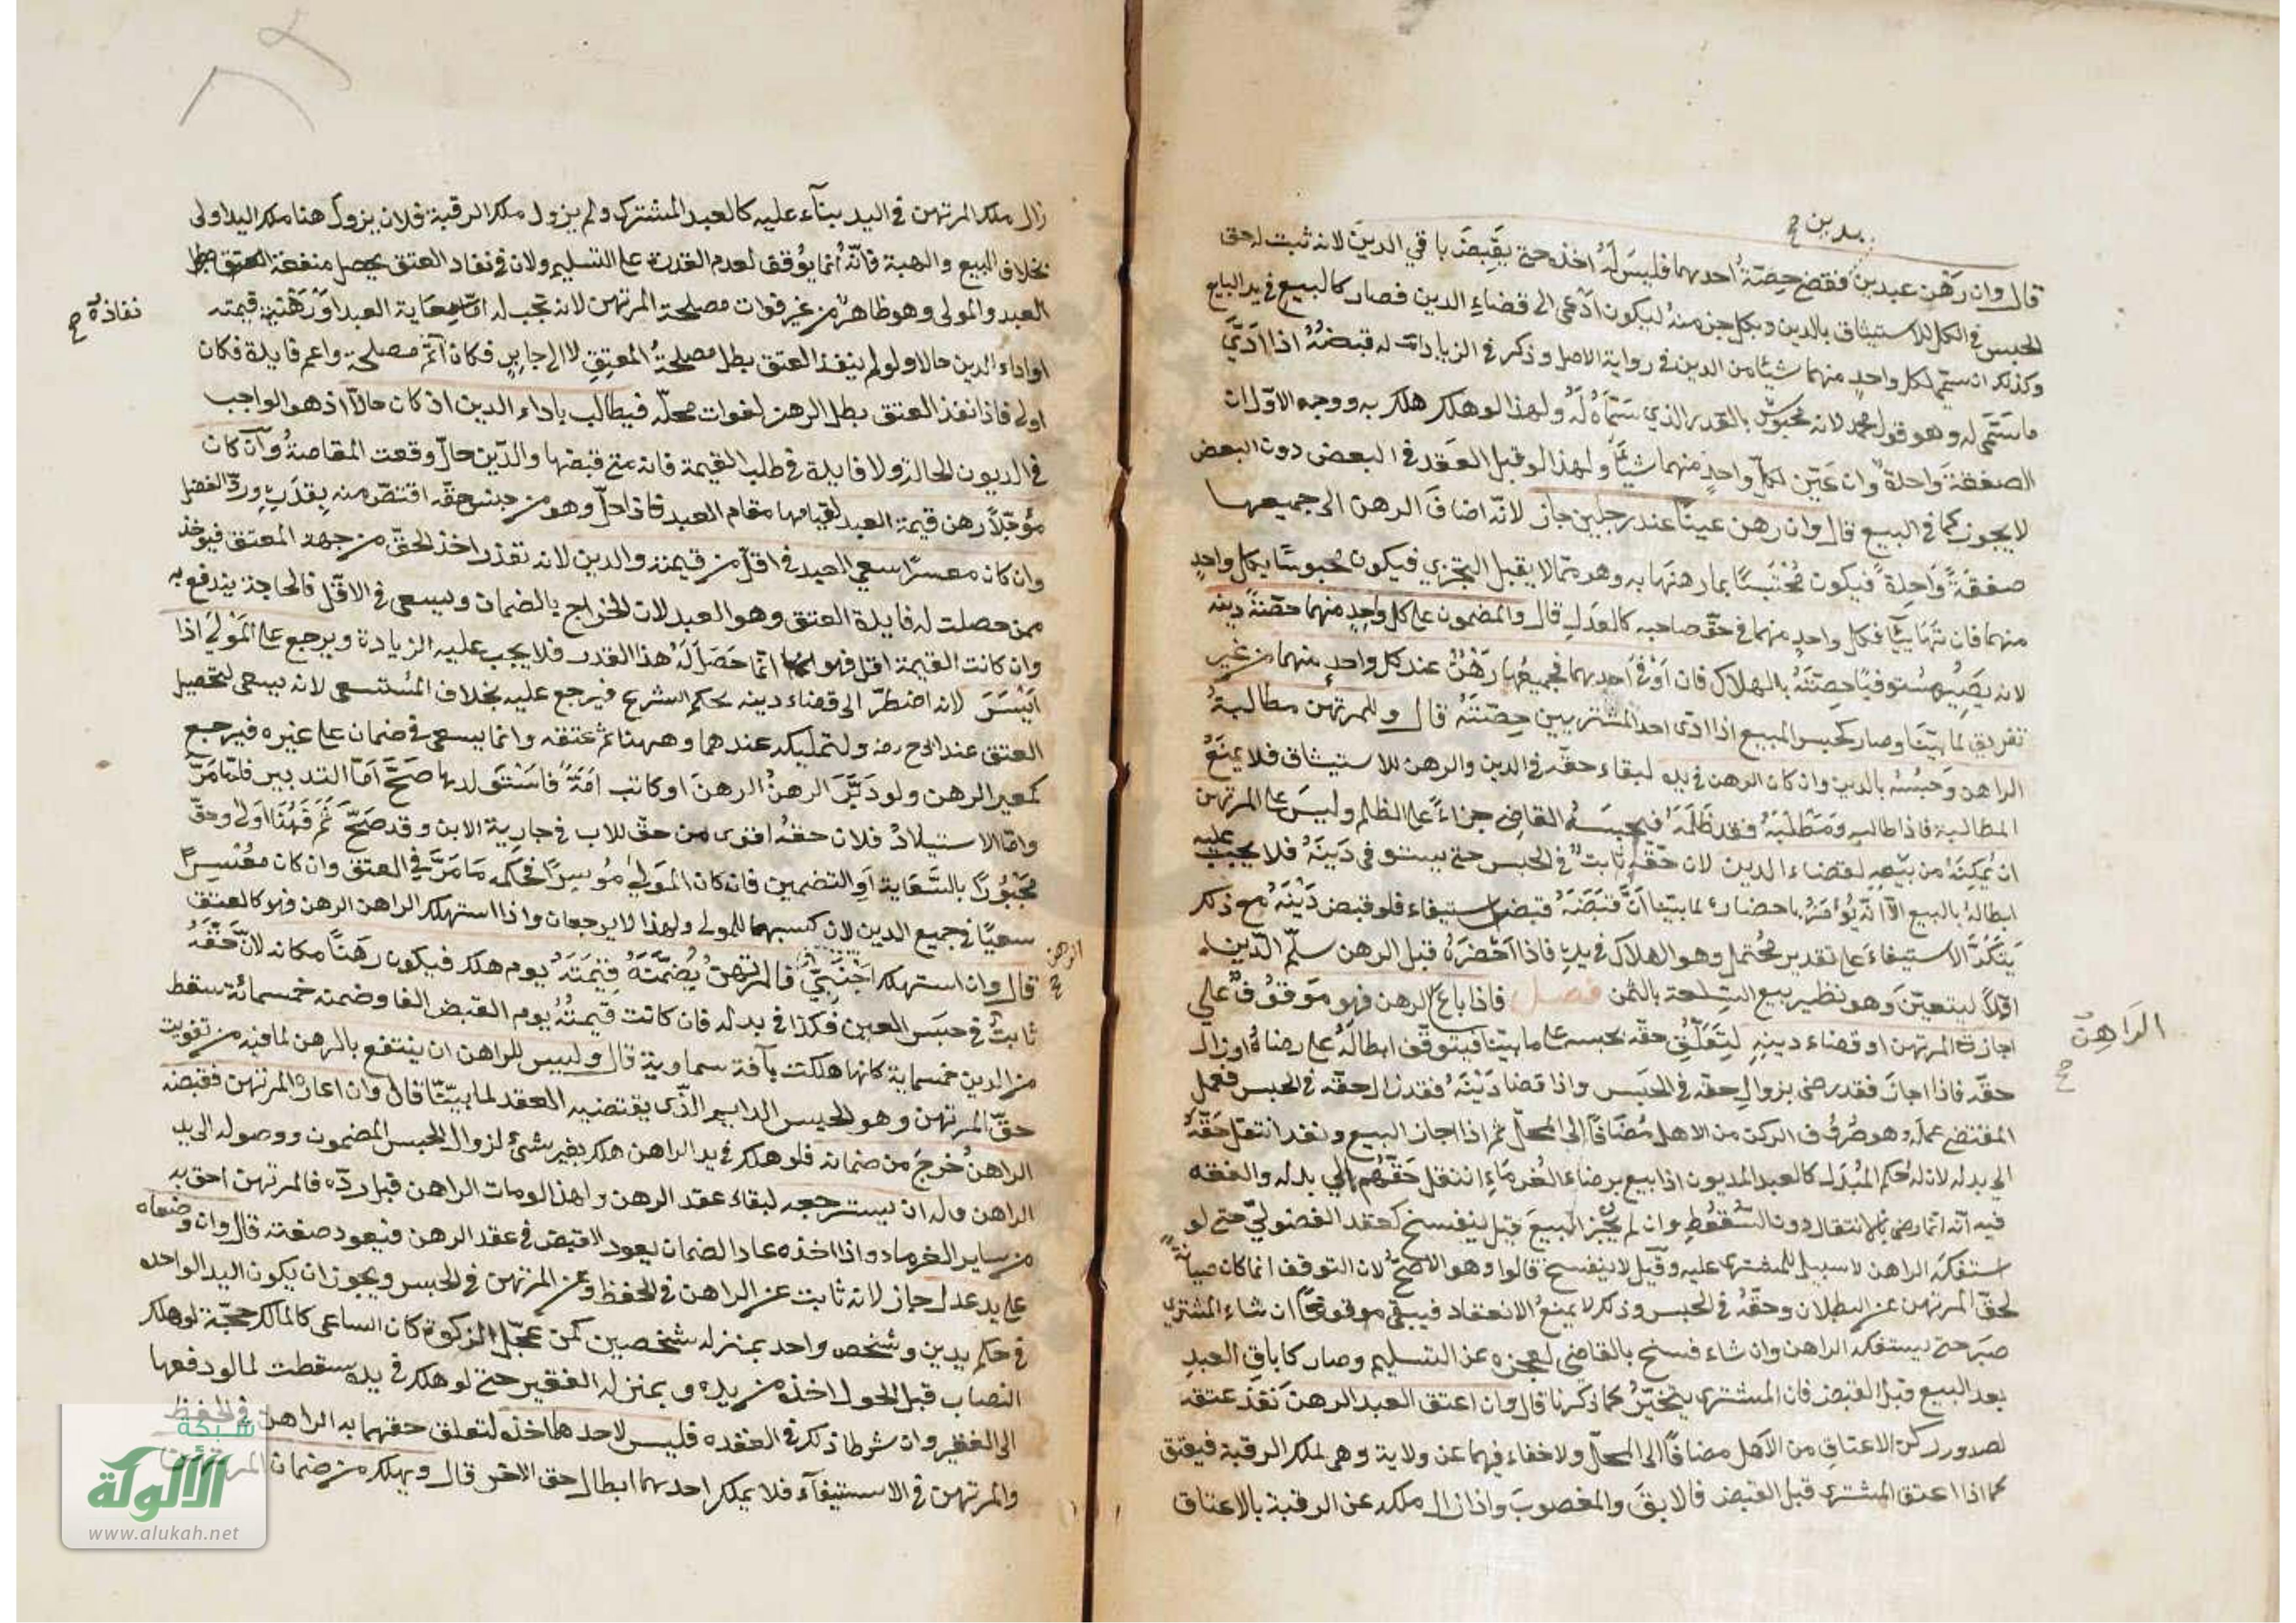 بدين ح
قال وان رَهَن عبدين فقضَى حِصّةَ احدهما فليسَ لَهُ اخذه حتى يَقبِضَ باقي الدين لانه ثبت له حق
الحبس في الكل للاستيثاق بالدين وبكل جزء منهُ ليكون ادْعى الى قضاءِ الدين فصار كالمبيع في يد البايع
وكذلك ان سمّى لكل واحدٍ منهما شيئا من الدين في رواية الاصل وذكر في الزيادات له قبضُهُ اذا ادّى
ما سَمّى له وهو قول محمد لانه محبوسٌ بالقدر الذي سَمّاهُ لَهُ ولهذا لو هلك هلك به ووجه الاوّل ان
الصفقة وَاحدة وان عَيّن لكلّ واحدٍ منهما شيئاً ولهذا لو قبل العَقد في البعض دون البعض
لا يجوز كما في البيع قال وان رهن عيناً عند رجلين جاز لانّه اضافَ الرهن الى جميعها
صفقةً وَاحِدة فيكون مُحْتبَسًا بما رهنَها به وهو مما لا يقبل التجزي فيكون محبوسًا بكل واحدٍ
منهما فان تَهَايَيَا فكل واحدٍ منهما في حقّ صاحبه كالعَدلِ قال والمضمون على كل واحِدٍ منهما حصّةُ دينه
لانه يَصِيرُ مُستوفيًا حِصّتَهُ بالهلاك فان اَوْفَى اَحدهما فجميعُها رَهْنٌ عند كل واحدٍ منهما من غير
تفريق لما بيّنا وصار كحبس المبيع اذا ادّى احد المشتريين حِصّتَهُ قال وللمرتهن مطالبةُ
الراهن وَحَبسُهُ بالدين وان كان الرهن في يده لبقاء حقّه في الدين والرهن للاستيثاق فلا يمنَعُ
المطالبة فاذا طالبه وَمَطَلَهُ فقد ظَلَمَهُ فيحبسَهُ القاضي جزاءً على الظلم وليسَ على المرتهن
ان يُمكِنَهُ من بَيعِهِ لقضاء الدين لان حقّهِ ثابتٌ في الحبس حتى يستوفى دَينَهُ فلا يجب عليه
ابطالهُ بالبيع الاّ انه يُؤمَرُ باحضاره لما بيّنا اَنَّ قبْضَهُ قبض استيفاء فلو قبض دَيْنَهُ مع ذلك
يَتكَرّرُ الاستيفاءَ على تقدير محتمل وهو الهلاك في يدهِ فاذا احْضَرَهُ قبل الرهن سلّم الدّين له
اوّلاً ليتعيّن وهو نظير بيع السِّلعة بالثمن فصل فاذا باعَ الرهن فهو مَوقوُف على
اجازة المرتهن او قضاء دينهِ لِتَعَلّقِ حقّه بحبسه على ما بيّنا فيتوقّف ابطالَهُ على رضاهُ او زال
حقّه فاذا اجازَ فقد رضى بزوالِ حقّه في الحبَس واذا قضا دَيْنَهُ فقد زال حقّه في الحبس فعمل
المقتضى عمله وهو صُدُوُر الركن من الاهل مُضَافاً الى المحلّ ثم اذا اجاز البيع ونفد انتقل حَقّهُ
الى بدله لانّ له حُكم المُبْدَل كالعبد المديون اذا بيع برضاء الغُرمَاءِ انتقل حَقّهُم الى بدله والفقه
فيه انّه انما رضى بالانتقال دون السُّقوُطِ وان لم يُجْز البيعَ قيل ينفسخ كعقد الفضولىّ حتى لو
استفكّه الراهن لا سبيل للمشترى عليه وقيل لا ينفسخ قالوا وهو الاصَحُّ لان التوقف انما كان صيانةً
لحقّ المرتهن عن البطلان وحقُّهُ في الحبس وذلك لا يمنعُ الانعقاد فيبقى موقوفاً ان شاء المشترى
صبَر حتى يستفكه الراهن وان شاء فسخ بالقاضى لعجزه عن التسليم وصار كاباق العبد
بعد البيع وقبل القبض فان المشترى يتخيّرُ كما ذكرنا قال وان اعتق العبد الرهن نَفَذَ عتقه
لصدور ركن الاعتاقِ من الاهل مضافاً الى المحلّ ولا خفاء فيهما عن ولاية وهى ملك الرقبة فيعتق
كما اذا اعتق المشترى قبل القبض فالابق والمغصوبَ واذا زال ملكه عن الرقبة بالاعتاق
الرَاهِن
ح
زال ملك المرتهن في اليد بناءً عليه كالعبد المشترك ولم يزول ملك الرقبة فلان يزول هنا ملك اليد اولى
بخلاف البيع والهبة فانّه اُنما يوُقف لعدم القدرة على التسليم ولان في نفاد العتق يحصل منفعة العتق
العبد والمولى وهو ظاهر من غير فوات مصلحة المرتهن لانه تجب له امّا سِعَاية العبد او رَهْنية قيمته
او اداء الدين حالا ولو لم ينفذ العتق بطل مصلحةُ المعتِقِ لا الى جابرٍ فكان اتمّ مصلحة واعم فايدة فكان
اولى فاذا نفذ العتق بطل الرهن لفوات محلّه فيطالب باداء الدين ان كان حالاّ اذ هو الواجب
في الديون الحالة ولا فايدة في طلب القيمة فانه متى قبضها والدّين حالّ وقعت المقاصةُ وان كان
مؤجّلاً رهن قيمة العبد لقيامها مقام العبد فاذا حلّ وهو من جنس حقّه اقتصّ منه بِقدَرهِ وردّ الفضل
وان كان معسرًا سعى العبد في اقلّ من قيمته والدين لانه تعذر اخذ الحقّ من جهة المعتق فيوخذ
ممن حصلت له فايدة العتق وهو العبد لان الخراج بالضمان ويسعى في الاقّل فالحاجة يندفع به
وان كانت القيمة اقل فهو انّما حَصَل لَهُ هذا القدر فلا يجب عليه الزيادة ويرجع على المَوْلى اذا
اَيْسَرَ لانه اضطرّ الى قضاء دينه بحكم الشرع فيرجع عليه بخلاف المُستسعى لانه يسعى لتحصيل
العتق عند ابى ح رضه ولتمليكه عندهما وههنا تمّ عتقه وانما يسعى في ضمان على غيره فيرجع
كمعير الرهن ولو دَبَّرَ الرهنُ الرهنَ او كاتب اَمَةً فاسْتَوَلدها صَحّ اَمّا التدبير فلما مَرّ
وامّا الاستيلادُ فلان حقّهُ اقوى من حق للاب في جارية الابن وقد صَحّ ثَم فَهُنا اَوَلى وحقّ
مَجْبُورٌ بالسّعَاية اَوِ التضمين فان كان المَولىٰ مُوُسِرًا فحكمه مَا مَرّ في العتق وان كان مُعْسِرًا
سعيَا في جميع الدين لان كسبهما للمولى ولهذا لا يرجعان واذا استهلك الراهن الرهن فهو كالعتق
قال وان استهلكه اجْنَبِيٌّ فالمرتهنُ يُضمّنَهُ قِيْمَتَهُ يوم هلك فيكون رهَنًا مكانه لانّ حَقّهُ
ثابتٌ في حبَس العين فكذا في بدله فان كانت قيمتُهُ يوم القبض الفا وضمنه خمسمائة سقط
من الدين خمسماية كانها هلكت بآفة سماوية قال وليس للراهن ان ينتفع بالرهن لما فيه من تفويت
حقّ المرتهن وهو الحبس الدايم الذّى يقتضيه العقد لما بيّنّا قال وان اعاره المرتهن فقبضه
الراهنُ خرجَ من ضمانه فلو هلك في يد الراهن هلك بغير شئ لزوال الحبس المضمون ووصوله الى يد
الراهن وله ان يسترجعه لبقاء عقد الرهن ولهذا لو مات الراهن قبل ردّه فالمرتهن احق به
من ساير الغرماء واذا اخذه عاد الضمان يعود القبض في عقد الرهن فتعود صفته قال وان وضعاه
على يد عدل جاز لانه ثابت عن الراهن في الحفظ وعن المرتهن في الحبس ويجوز ان يكون اليد الواحده
في حكم يدين وشخص واحد بمنزله شخصين كمن عجّل الزكوة كان الساعى كالمالك حجّة لو هلك
النصاب قبل الحول اخذه من يده وبمنزله الفقير حتى لو هلك في يده سقطت لما لو دفعها
الى الفقير وان شرطا ذلك في العقده فليس لاحدهما اخذه لتعلق حقهما به الراهن في الحفظ
والمرتهن في الاستيفآء فلا يملك احدهما ابطال حق الاخر قال ويهلك من ضمان المرتهن
نفاذه ح
الرهن
ح
شبكة
الألوكة
www.alukah.net